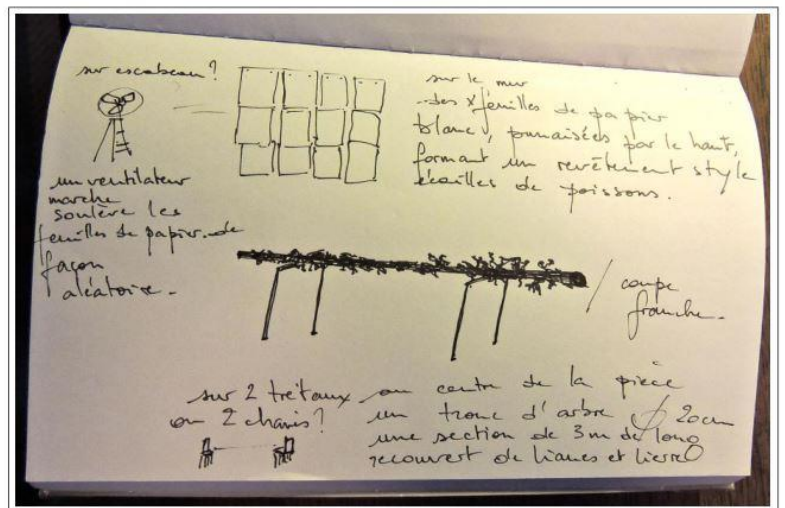 sur escabeau ?
un ventilateur
marche
soulève les
feuilles de papier de
façon
aléatoire.
sur le mur
des feuilles de papier
blanc, punaisées par le haut,
formant un revêtement style
écailles de poissons.
coupe
franche.
sur 2 trétaux
ou 2 chaises ?
au centre de la pièce
un tronc d'arbre ϕ 20cm
une section de 3m de long
recouvert de lianes et lierre